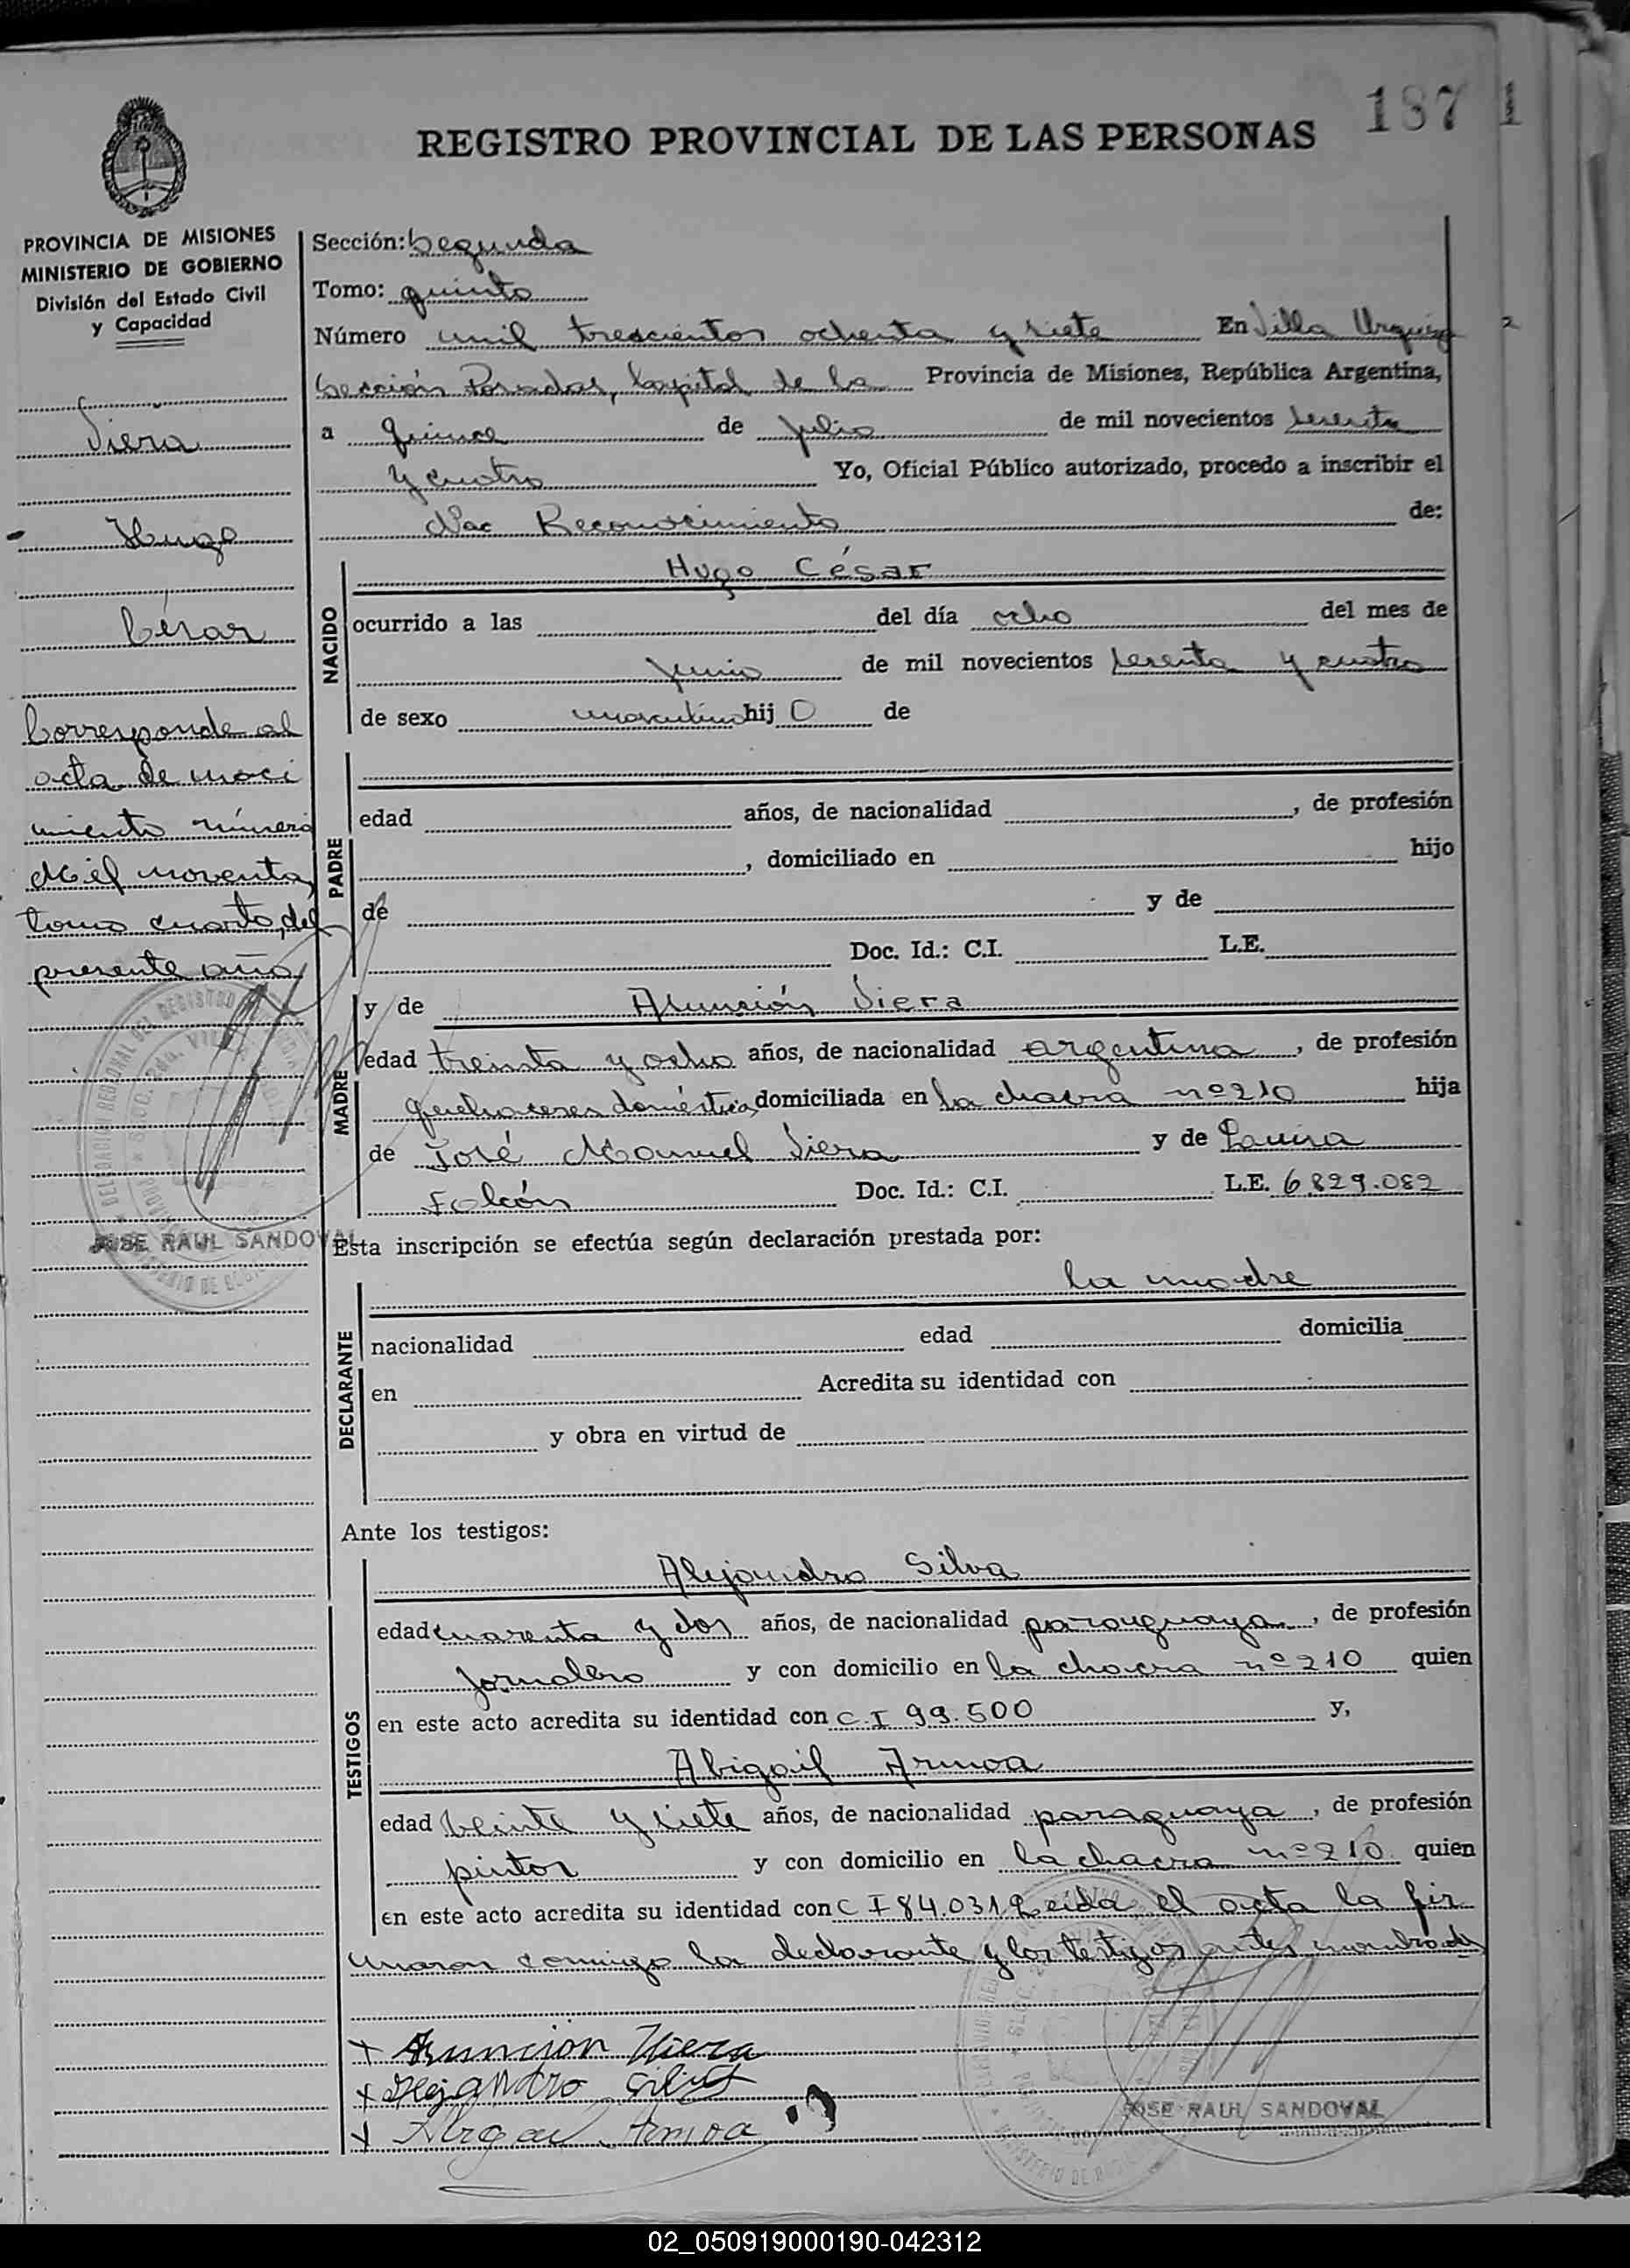 187 1
REGISTRO PROVINCIAL DE LAS PERSONAS
PROVINCIA DE MISIONES
MINISTERIO DE GOBIERNO
División del Estado Civil
y Capacidad
Viera
Hugo
César
Corresponde al
acta de naci
miento número
Mil noventa,
tomo cuarto, del
presente año
JOSE RAUL SANDOVAL
Sección: Segunda
Tomo: quinto
Número mil trescientos ochenta y siete En Villa Urquiza
Sección Posadas, Capital de la Provincia de Misiones, República Argentina,
a quince de julio de mil novecientos sesenta
y cuatro Yo, Oficial Público autorizado, procedo a inscribir el
Nac Reconocimiento de:
NACIDO
Hugo César
ocurrido a las del día ocho del mes de
junio de mil novecientos sesenta y cuatro
de sexo masculino hij O de
PADRE
edad años, de nacionalidad , de profesión
, domiciliado en hijo
de y de
Doc. Id.: C.I. L.E.
MADRE
y de Asunción Viera
edad treinta y ocho años, de nacionalidad argentina , de profesión
quehaceres domésticos, domiciliada en la chacra nº 210 hija
de José Manuel Viera y de Luisa
Falcón Doc. Id.: C.I. L.E. 6.829.082
Esta inscripción se efectúa según declaración prestada por:
DECLARANTE
la madre
nacionalidad edad domicilia
en Acredita su identidad con
y obra en virtud de
Ante los testigos:
TESTIGOS
Alejandro Silva
edad cuarenta y dos años, de nacionalidad paraguaya , de profesión
jornalero y con domicilio en la chacra nº 210 quien
en este acto acredita su identidad con C.I 99.500 y,
Abigail Armoa
edad veinte y siete años, de nacionalidad paraguaya , de profesión
pintor y con domicilio en la chacra nº 210. quien
en este acto acredita su identidad con C I 84.031 Leida el acta la fir
maron conmigo la declarante y los testigos antes nombrados
+ Asuncion Viera
+ Alejandro Silva
+ Abigail Armoa
JOSE RAUL SANDOVAL
02_050919000190-042312